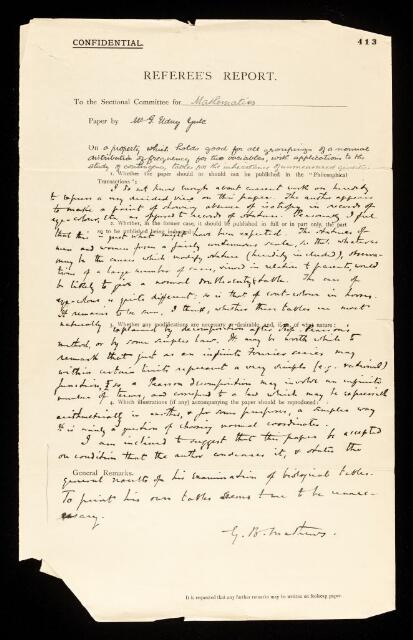 CONFIDENTIAL.
413
REFEREE'S REPORT.
To the Sectional Committee for Mathematics
Paper by Mr G. Udny Yule
On a property which holds good for all groupings of a normal
distribution of frequency for two variables, with applications to the
study of contingency tables for the inheritance of unmeasured qualities.
1. Whether the paper should or should not be published in the "Philosophical
Transactions":
I do not know enough about current work on heredity
to express a very decided view on this paper. The author appears
to make a point of showing absence of isotropy in records of
eye-colour, etc. as opposed to records of stature. Personally I feel
2. Whether, in the former case, it should be published in full or in part only, the part
that this is just what might have been expected. The stature of
to be published being indicated:
men and women forms a fairly continuous scale, so that whatever
may be the causes which modify stature (heredity included), observa-
tions of a large number of cases, viewed in relation to parents, would
be likely to give a normal table. The case of
eye-colour is quite different: so is that of coat-colour in horses.
It remains to be seen, I think, whether these tables are most
3. Whether any modifications are necessary or desirable, and, if so, of what nature:
naturally explained by decomposition after Prof. Pearson's
method, or by some simpler law. It may be worth while to
remark that just as an infinite Fourier series may
within certain limits represent a very simple (e.g. rational)
function, so a Pearson decomposition may involve an infinite
number of terms, and correspond to a law which may be expressed
4. Which illustrations (if any) accompanying the paper should be reproduced:
arithmetically in another, & for some purposes, a simpler way
It is mainly a question of choosing normal coordinates.
I am inclined to suggest that the paper be accepted
on condition that the author condenses it, & states the
General Remarks.
general results of his examination of biological tables.
To print his own tables seems to me to be unnec-
essary.
G. B. Mathews.
It is requested that any further remarks may be written on foolscap paper.